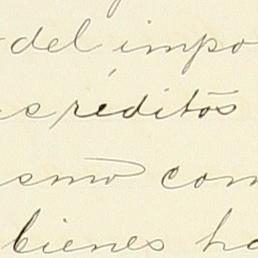 del impo
s créditos
ismo com
bienes ha